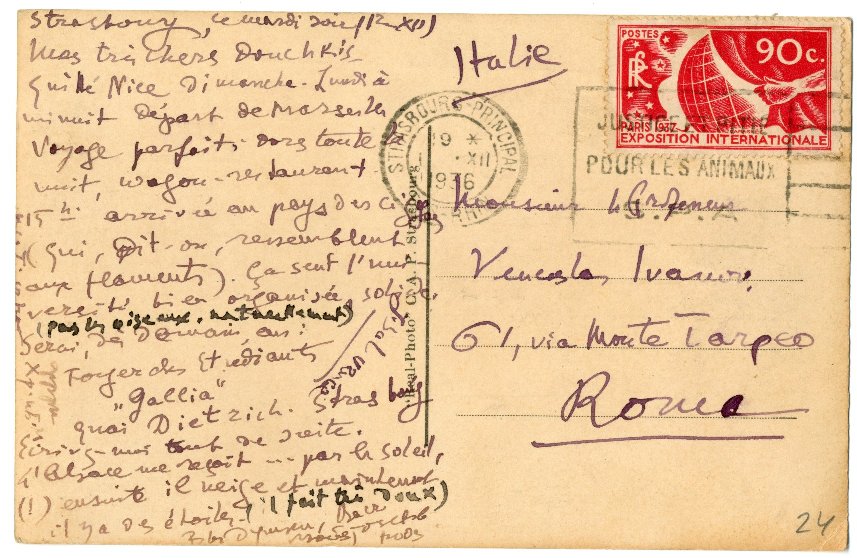 Strasbourg, le mardi soir (12 XII)
Mes très chers Douchkis
Quitté Nice Dimanche. Lundi à
minuit départ de Marseille
Voyage parfait: dors toute
nuit, wagon-restaurant
15h arrivée au pays des cigognes
(qui, dit-on, ressemblent
aux flamants). Ça sent l'uni
versité bien organisée, solide.
(pas les oiseaux, naturellement)
Serai, dès demain, au:
Foyer des Etudiants
"Gallia"
quai Dietrich. Strasbourg
Ecrivez-moi tout de suite.
L'Alsace me reçoit ... par le soleil,
(!) ensuite il neige et maintenant
il y a des étoiles! (il fait très doux)
Italie
POSTES
RF
90c.
PARIS 1937
EXPOSITION INTERNATIONALE
STRASBOURG-PRINCIPAL
19 *
XII
1936
JUSTICE ET PITIE
POUR LES ANIMAUX
S.P.A
"Real-Photo" C. A. P. Strasbourg
Monsieur le Professeur
Venceslas Ivanov
61, via Monte Tarpeo
Roma
24